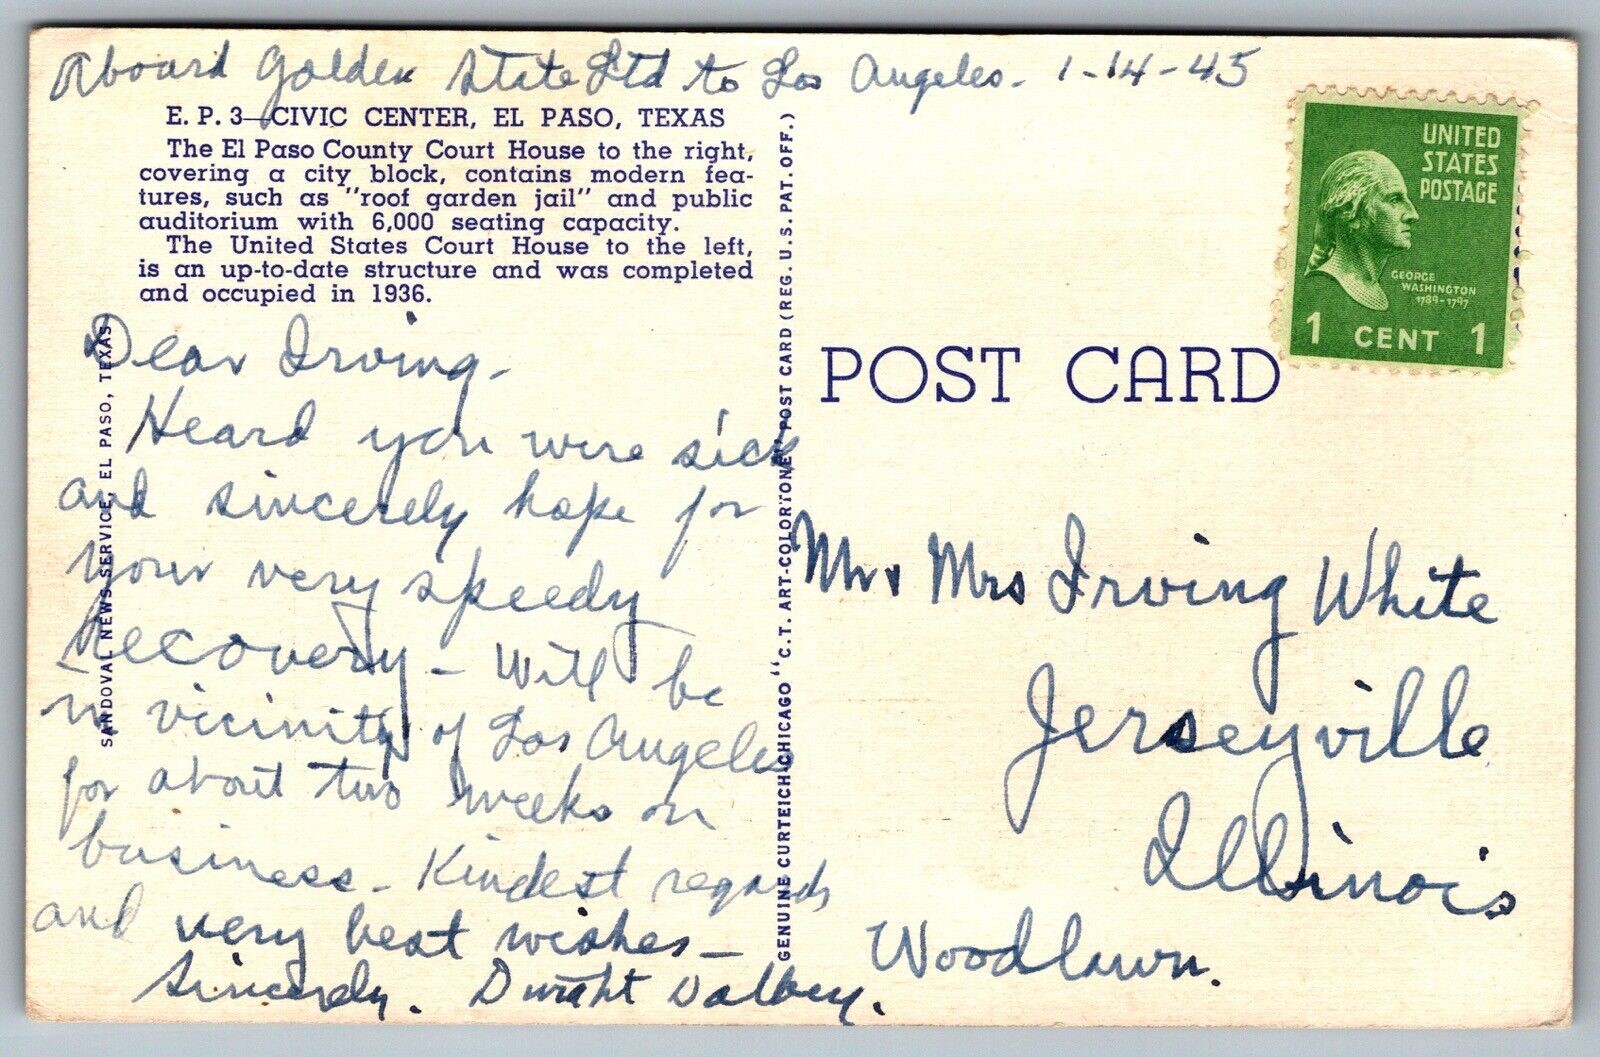 Aboard Golden State Ltd to Los Angeles - 1-14-45
E. P. 3—CIVIC CENTER, EL PASO, TEXAS
The El Paso County Court House to the right,
covering a city block, contains modern fea-
tures, such as "roof garden jail" and public
auditorium with 6,000 seating capacity.
The United States Court House to the left,
is an up-to-date structure and was completed
and occupied in 1936.
SANDOVAL NEWS SERVICE, EL PASO, TEXAS
Dear Irving-
Heard you were sick
and sincerely hope for
your very speedy
recovery - Will be
in vicinity of Los Angeles
for about two weeks on
business - Kindest regards
and very best wishes -
Sincerely. Dwight Dalbey.
GENUINE CURTEICH CHICAGO "C.T. ART-COLORTONE" POST CARD (REG. U.S. PAT. OFF.)
UNITED
STATES
POSTAGE
GEORGE
WASHINGTON
1789-1797
1 CENT 1
POST CARD
Mr & Mrs Irving White
Jerseyville
Illinois
Woodlawn.